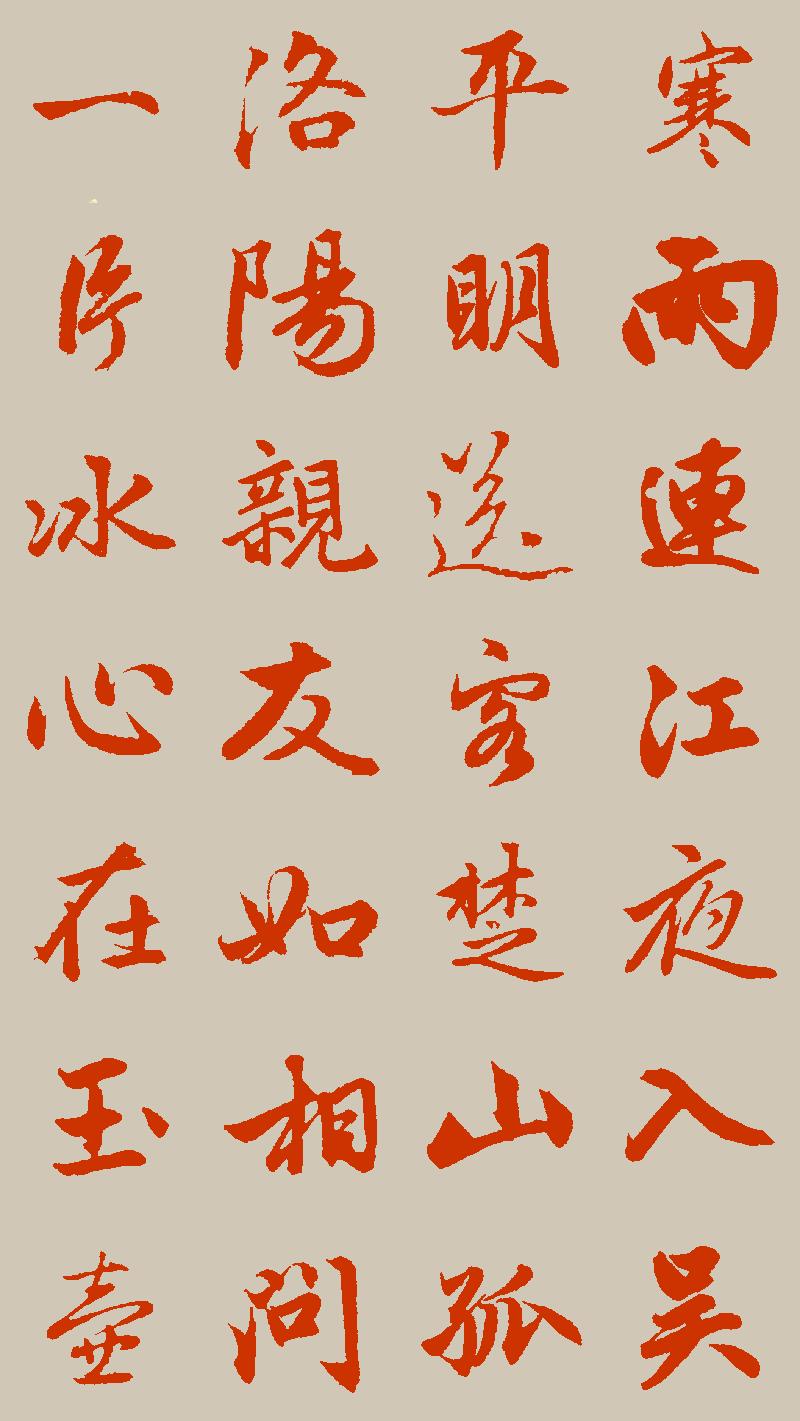 寒雨連江夜入吴
平明送客楚山孤
洛陽親友如相問
一片冰心在玉壺